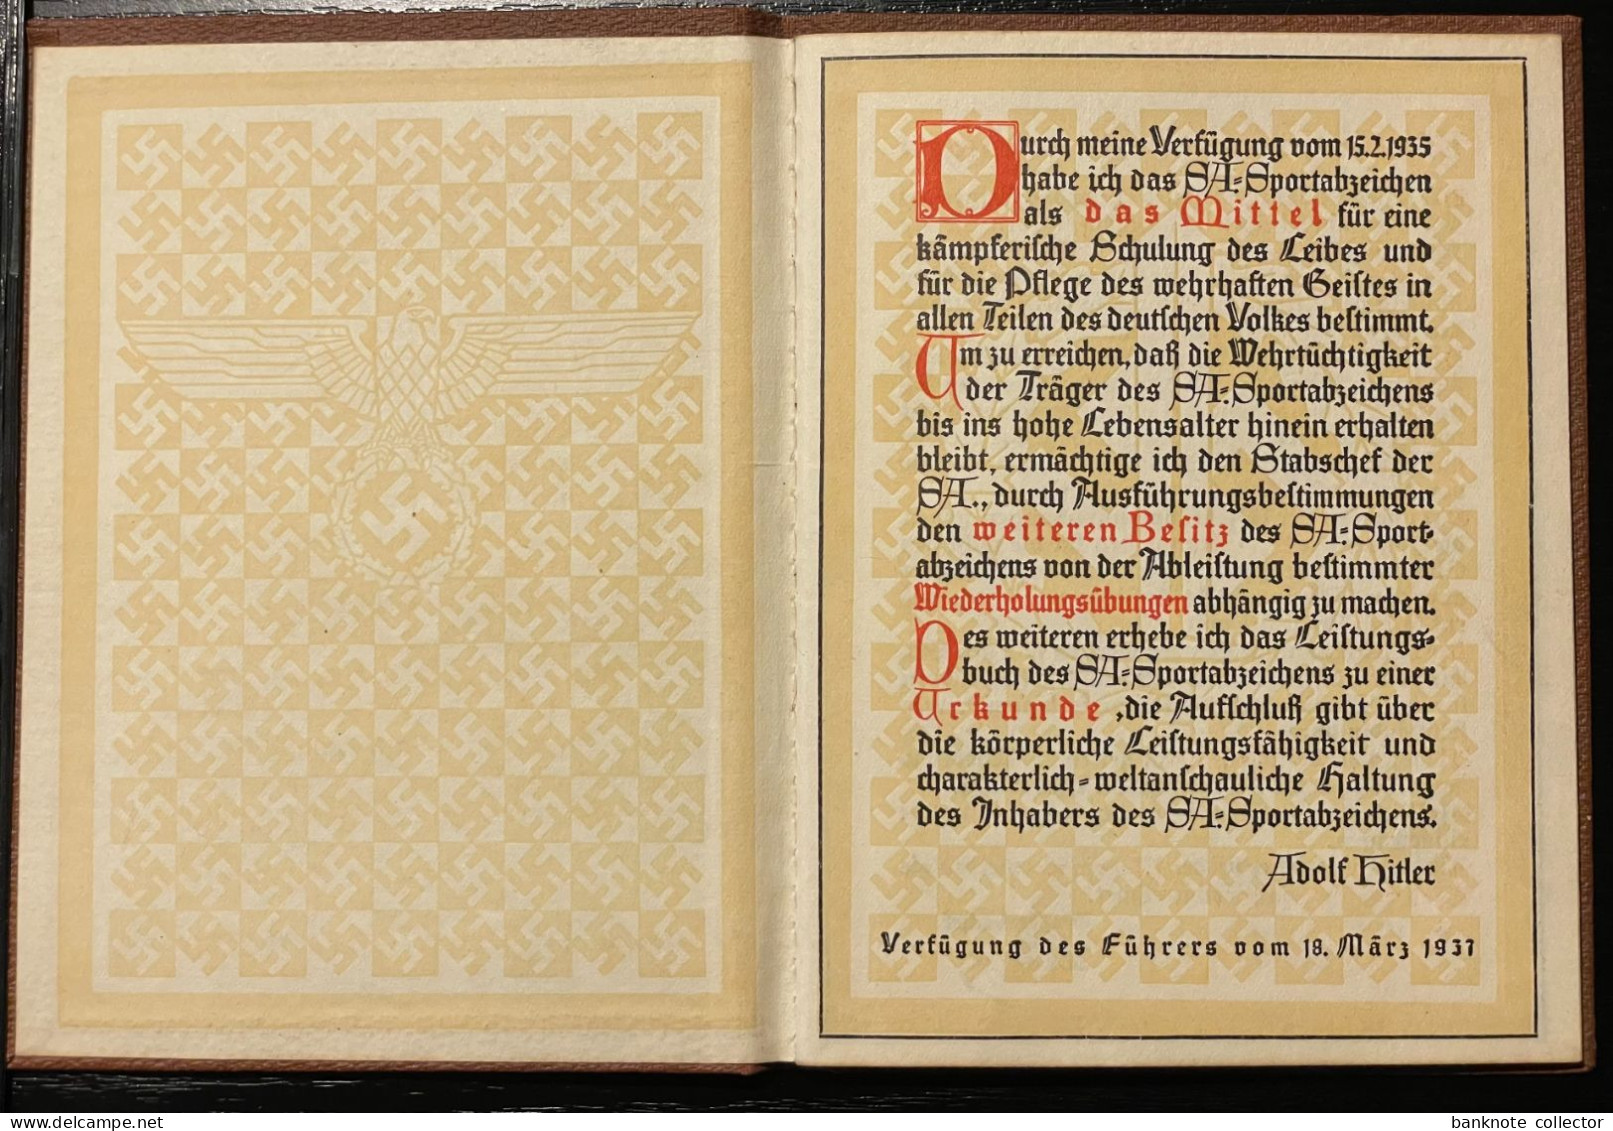 Durch meine Verfügung vom 15.2.1935
habe ich das SA.-Sportabzeichen
als das Mittel für eine
kämpferische Schulung des Leibes und
für die Pflege des wehrhaften Geistes in
allen Teilen des deutschen Volkes bestimmt.
Um zu erreichen, daß die Wehrtüchtigkeit
der Träger des SA.-Sportabzeichens
bis ins hohe Lebensalter hinein erhalten
bleibt, ermächtige ich den Stabschef der
SA., durch Ausführungsbestimmungen
den weiteren Besitz des SA.-Sport-
abzeichens von der Ableistung bestimmter
Wiederholungsübungen abhängig zu machen.
Des weiteren erhebe ich das Leistungs-
buch des SA.-Sportabzeichens zu einer
Urkunde, die Aufschluß gibt über
die körperliche Leistungsfähigkeit und
charakterlich-weltanschauliche Haltung
des Inhabers des SA.-Sportabzeichens.
Adolf Hitler
Verfügung des Führers vom 18. März 1937
banknote collector